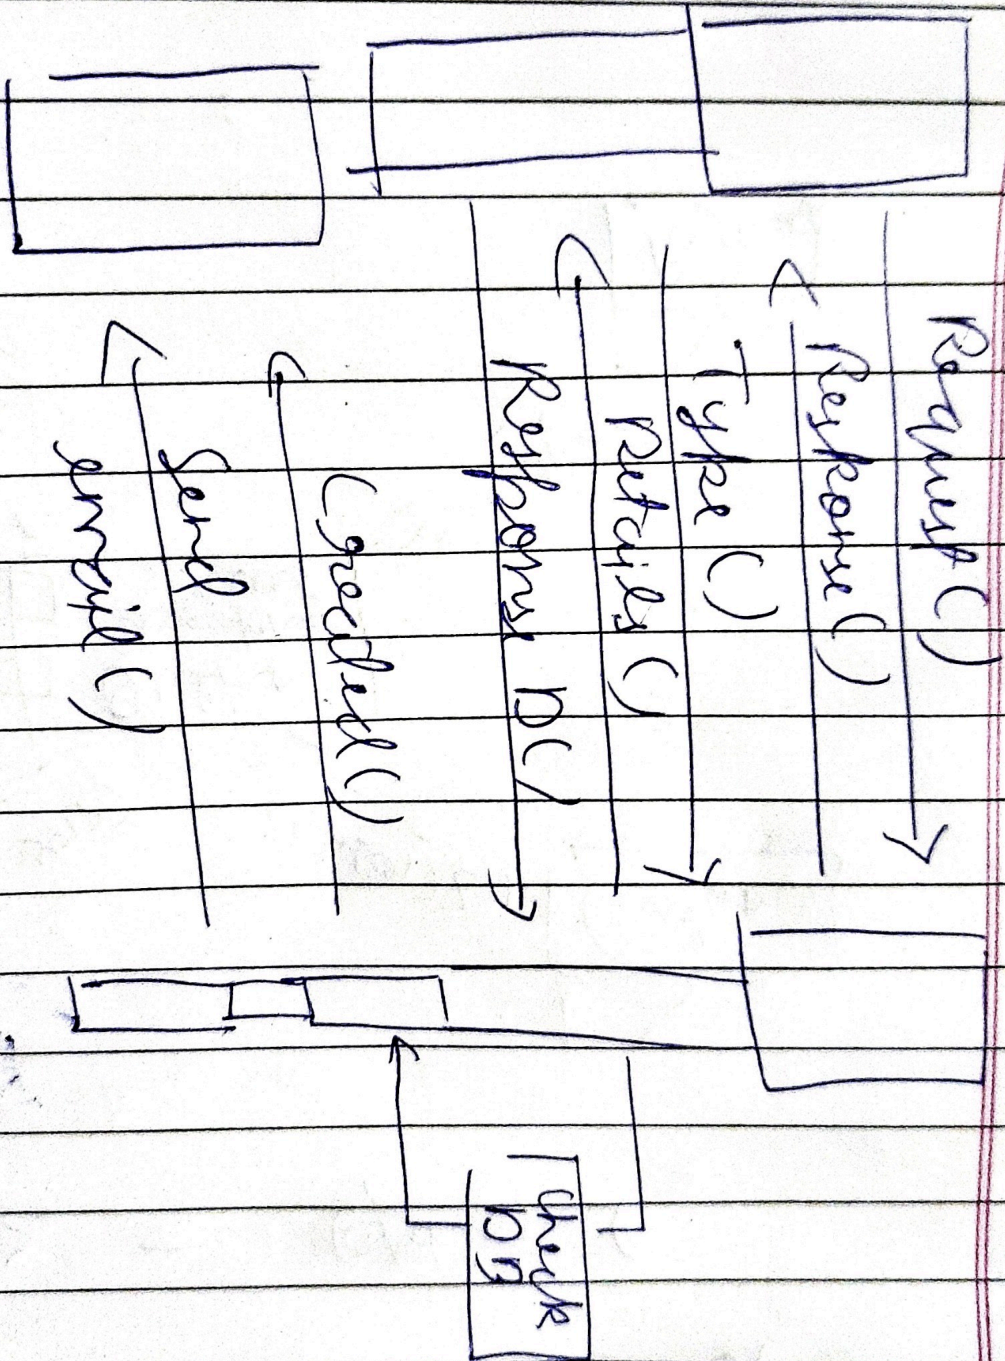 Request()
Response()
Type()
Retails()
Response D()
Created()
Send
email()
Check
DB